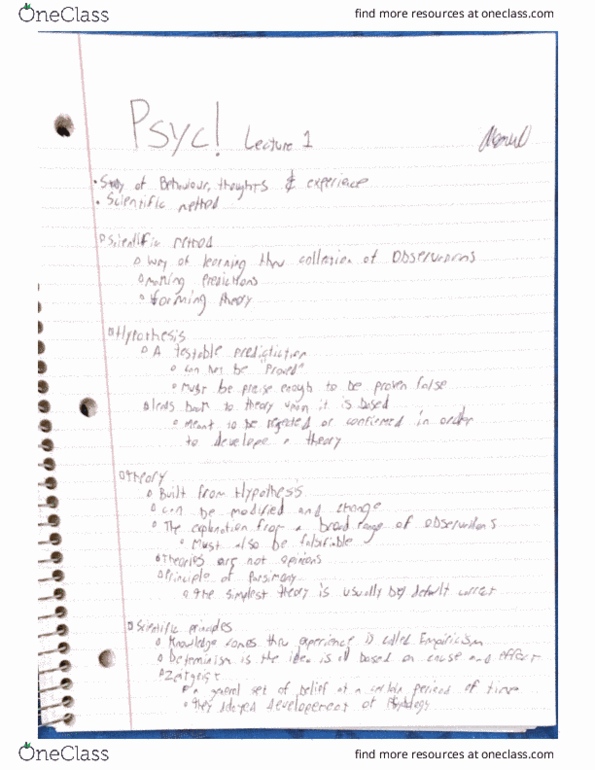 OneClass
find more resources at oneclass.com
Psyc! Lecture 1
• Study of Behaviour, thoughts & experience
• Scientific method
Scientific method
Way of learning thru collection of Observations
making predictions
forming theory
Hypothesis
A testable predictiction
can not be "Proved"
Must be precise enough to be proven false
leads back to theory upon it is based
Meant to be rejected or confirmed in order
to develope a theory
Theory
Built from Hypothesis
can be modified and change
The explanation from a broad range of observations
Must also be falsifiable
Theories are not opinions
Principle of Parsimony
the simplest theory is usually by default correct
Scientific principles
Knowledge comes thru experience is called Empiricism
Determinism is the idea is all based on cause and effect
Zeitgeist
a general set of belief at a certain period of time
they developement of Psychology
OneClass
find more resources at oneclass.com